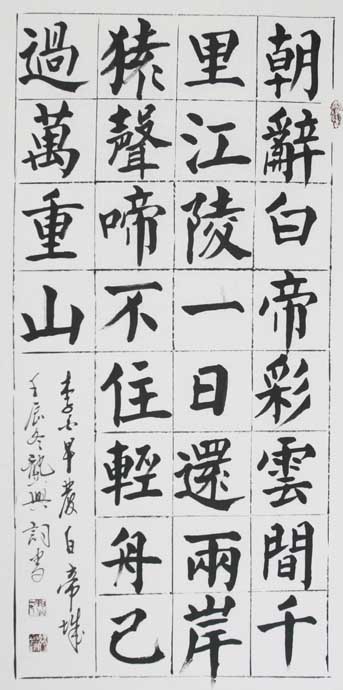 朝辭白帝彩雲間千
里江陵一日還兩岸
猿聲啼不住輕舟已
過萬重山
李白早發白帝城
壬辰冬興書